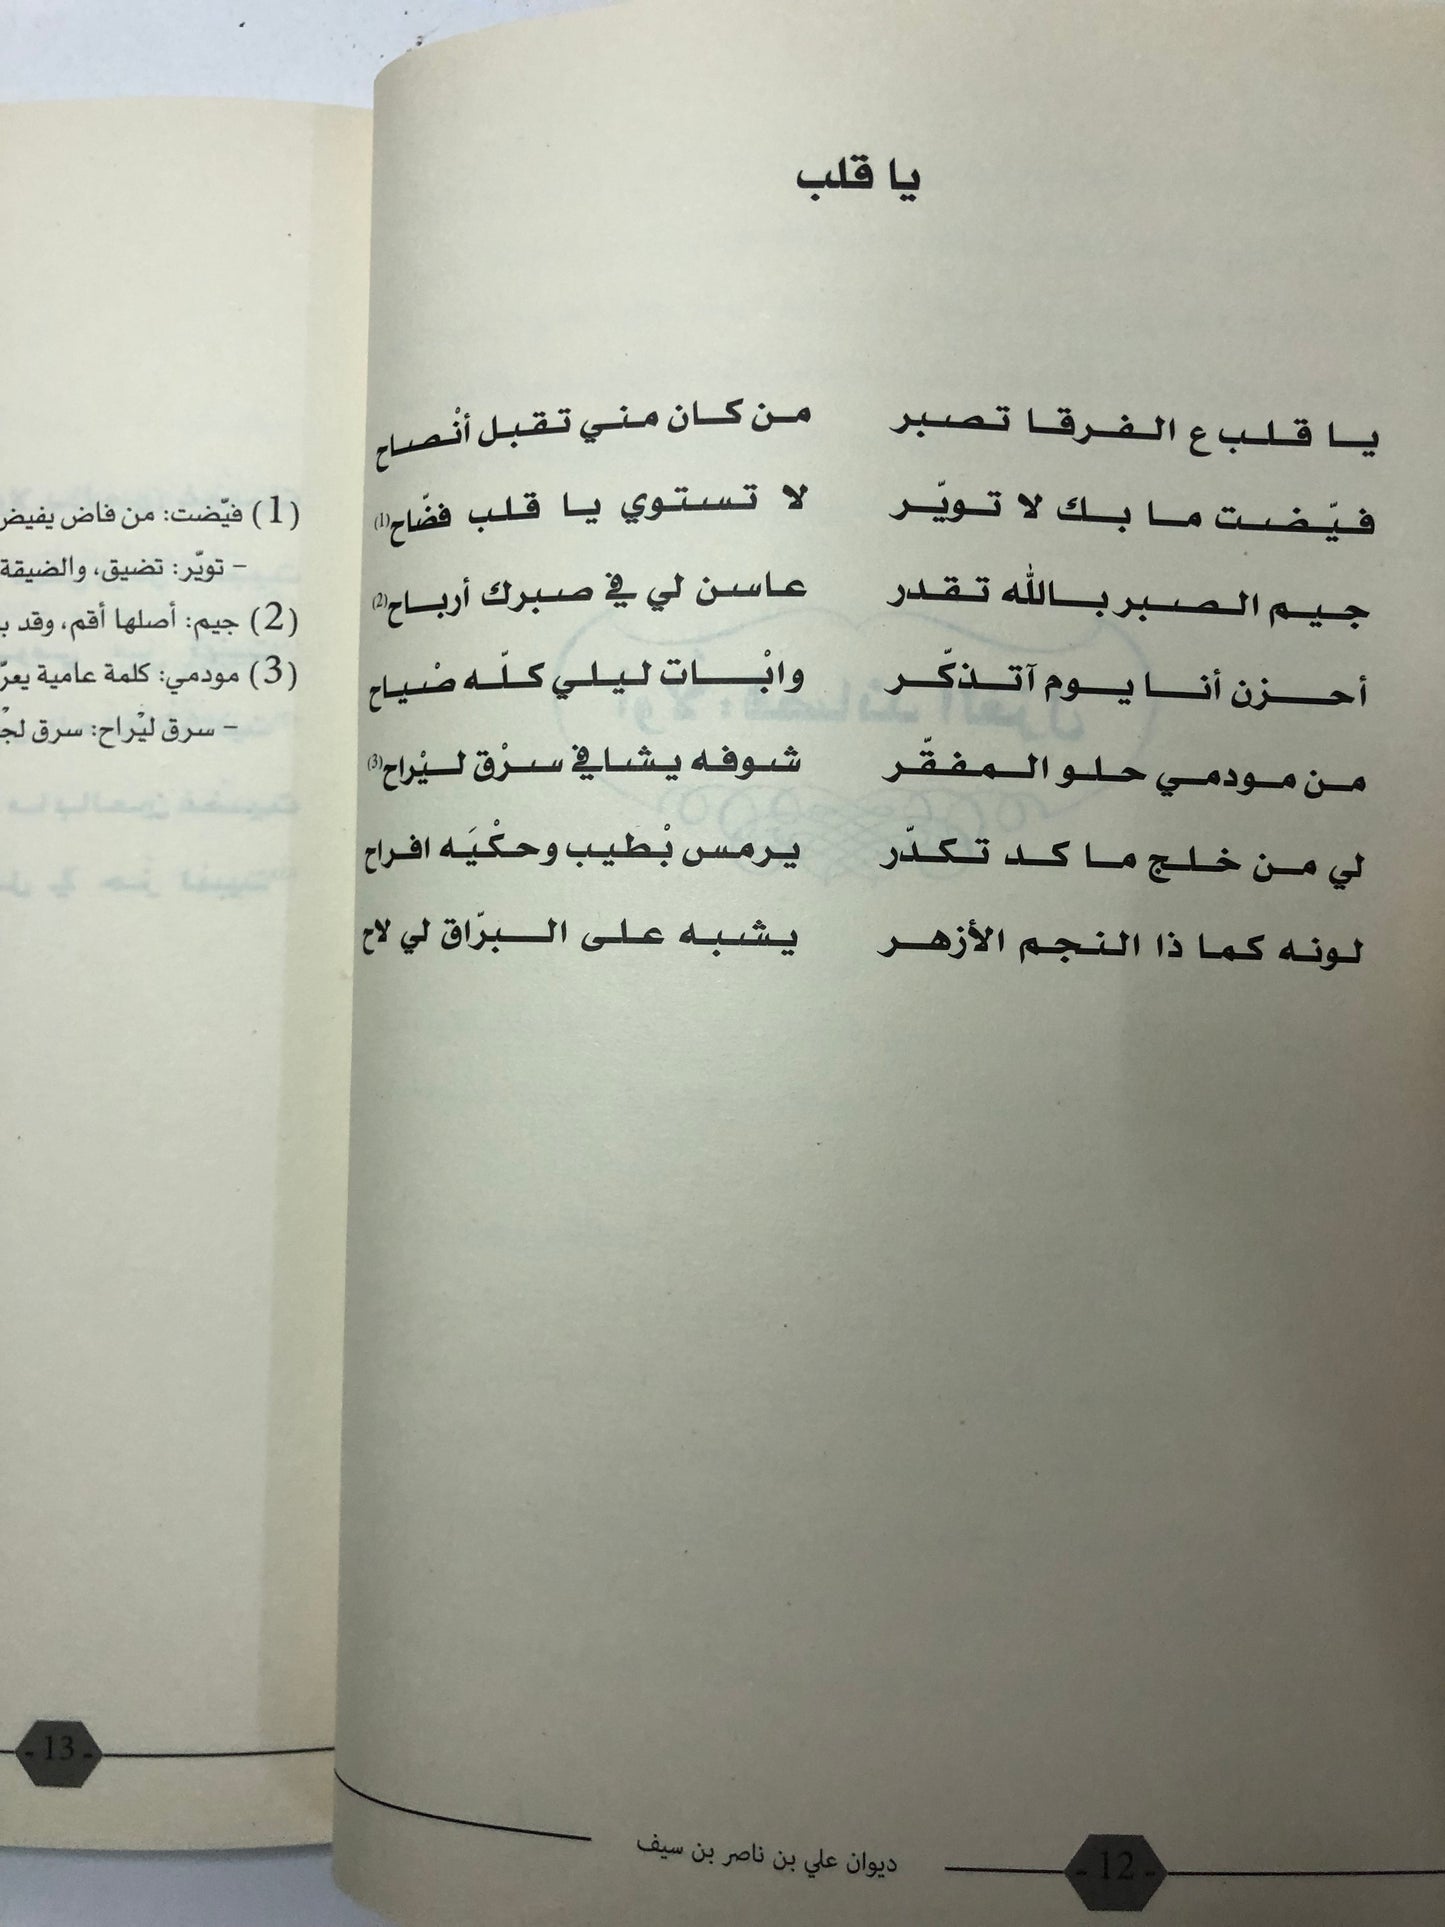 يا قلب
يا قلب ع الفرقا تصبر من كان مني تقبل أنْصاح
فيّضت ما بك لا تويّر لا تستوي يا قلب فضّاح(1)
جيم الصبر بالله تقدر عاسن لي في صبرك أرباح(2)
أحزن أنا يوم آتذكّر وابْات ليلي كلّه صْياح
من مودمي حلو المفقّر شوفه يشافي سرْق ليْراح(3)
لي من خلج ما كد تكدّر يرمس بْطيب وحكْيَه افراح
لونه كما ذا النجم الأزهر يشبه على البرّاق لي لاح
ديوان علي بن ناصر بن سيف
- 12 -
(1) فيّضت: من فاض يفيض
- تويّر: تضيق، والضيقة
(2) جيم: أصلها أقم، وقد
(3) مودمي: كلمة عامية
- سرق ليْراح: سرق
- 13 -